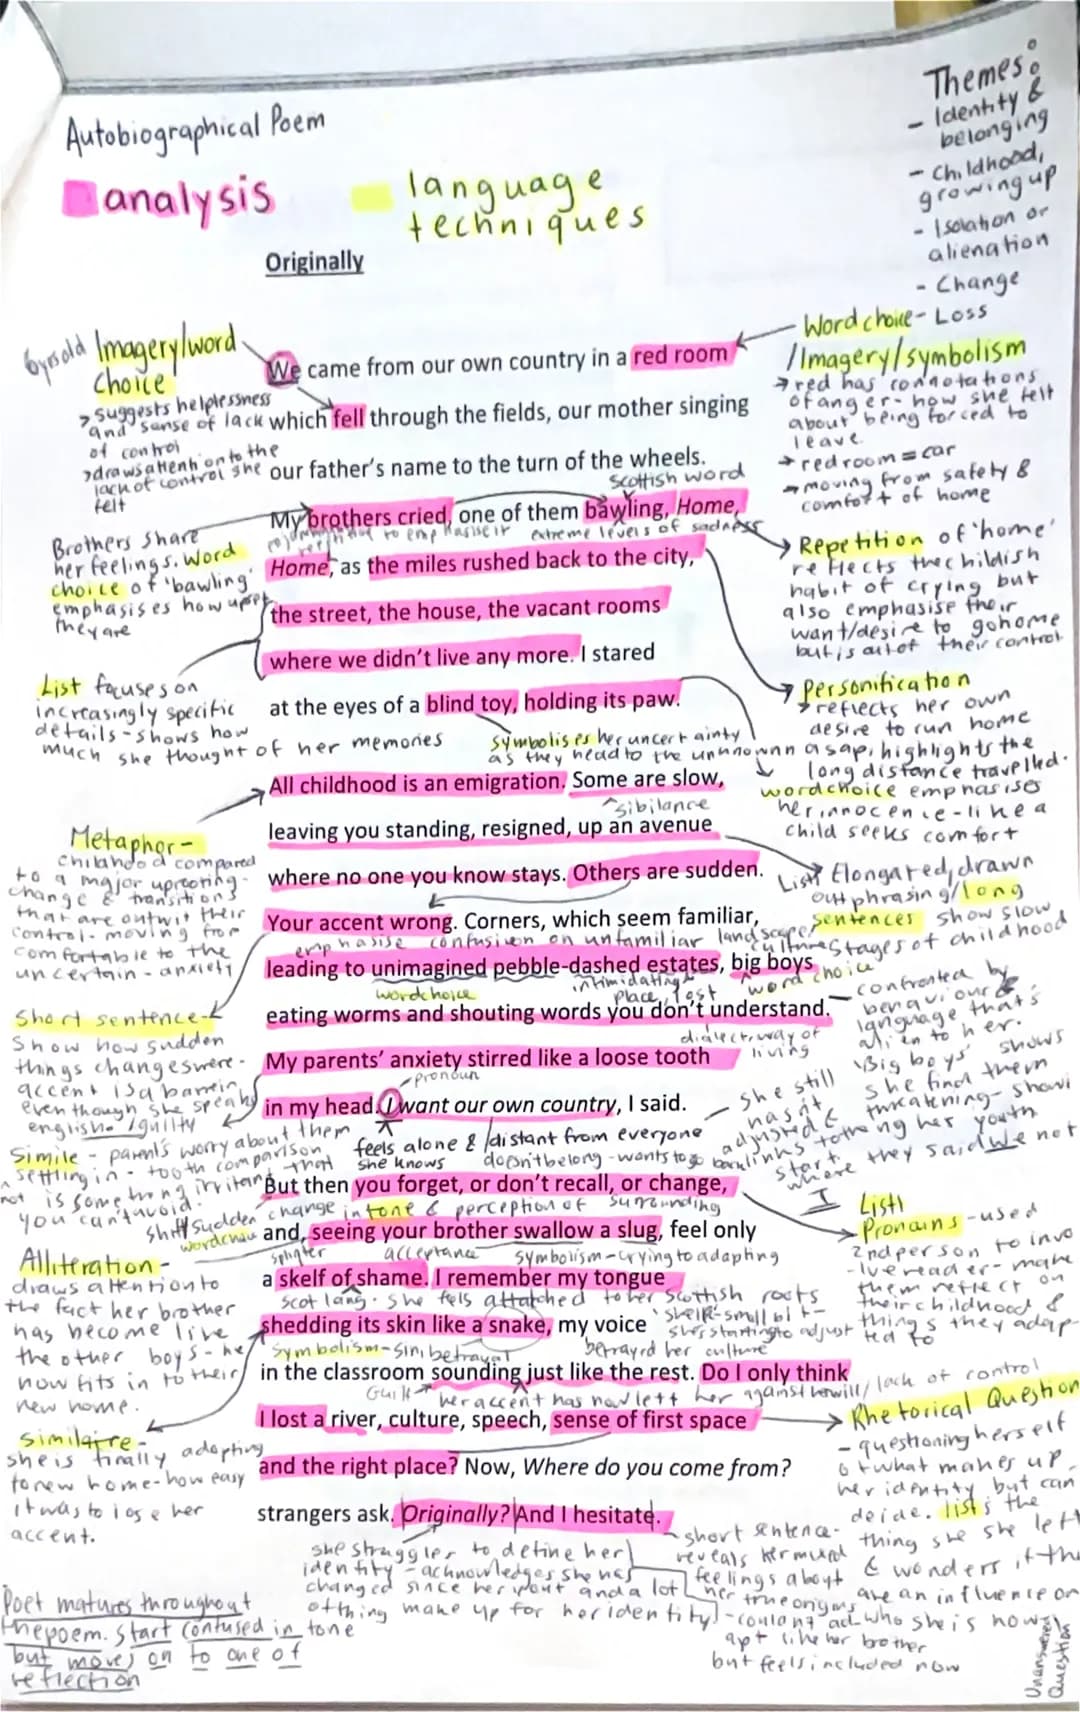 Themes:
- Identity &
belonging
- Childhood,
growing up
- Isolation or
alienation
- Change
Autobiographical Poem
analysis
language
techniques
Originally
6yrs old
Imagery/word
choice
> suggests helplessness
and sense of lack
of control
> draws attention to the
lack of control she
felt
Word choice - Loss
/Imagery/symbolism
→ red has connotations
of anger - how she felt
about being forced to
leave
→ red room = car
→ moving from safety &
comfort of home
We came from our own country in a red room
which fell through the fields, our mother singing
our father's name to the turn of the wheels.
Scottish word
My brothers cried, one of them bawling, Home,
to emphasise it
extreme levels of sadness
Home, as the miles rushed back to the city,
the street, the house, the vacant rooms
where we didn't live any more. I stared
at the eyes of a blind toy, holding its paw.
Brothers share
her feelings. Word
choice of 'bawling'
emphasises how upset
they are
Repetition of 'home'
reflects the childish
habit of crying but
also emphasise their
want/desire to go home
but is out of their control
List focuses on
increasingly specific
details - shows how
much she thought of her memories
symbolises her uncertainty
as they head to the unknown
Personification
> reflects her own
desire to run home
asap, highlights the
long distance travelled.
wordchoice emphasises
her innocence - like a
child seeks comfort
All childhood is an emigration. Some are slow,
sibilance
leaving you standing, resigned, up an avenue
where no one you know stays. Others are sudden.
Your accent wrong. Corners, which seem familiar,
emphasise confusion on unfamiliar landscape/
culture
leading to unimagined pebble-dashed estates, big boys
wordchoice
intimidating
place, lost
word choice
eating worms and shouting words you don't understand.
dialect, way of
living
My parents' anxiety stirred like a loose tooth
pronoun
in my head. I want our own country, I said.
Metaphor -
childhood compared
to a major uprooting -
change & transitions
that are outwit their
control - moving from
comfortable to the
uncertain - anxiety
List Elongated, drawn
out phrasing/long
sentences show slow
stages of childhood
confronted by
behaviour &
language that's
alien to her.
'Big boys' shows
she find them
threatening - showi
ng her youth
Short sentence -
Show how sudden
things changes were -
accent is a barrier
even though she speaks
english - guilty
feels alone & distant from everyone
she knows
doesn't belong - wants to go back
she still
hasn't
adjusted &
links to
start
where they said We not
I
Simile - parent's worry about them
settling in - tooth comparison
is something irritant that
you can't avoid.
not
But then you forget, or don't recall, or change,
shift/sudden change in tone & perception of surrounding
wordchoice
and, seeing your brother swallow a slug, feel only
splinter
acceptance
symbolism - trying to adapting
a skelf of shame. I remember my tongue
scot lang. She fels attatched to her scottish roots
shedding its skin like a snake, my voice
'skelf - small bit -
she's starting to adjust
Symbolism - sin, betrayal
betrayed her culture
in the classroom sounding just like the rest. Do I only think
Guilt
her accent has now left her against her will/lack of control
I lost a river, culture, speech, sense of first space
and the right place? Now, Where do you come from?
strangers ask. Originally? And I hesitate.
List
Pronouns - used
2nd person to invo
lve reader - make
them reflect on
their childhood &
things they adap-
ted to
Alliteration -
draws attention to
the fact her brother
has become like
the other boys - he
now fits in to their
new home.
she is finally adapting
to new home - how easy
it was to lose her
accent.
Rhetorical Question
- questioning herself
of what makes up
her identity but can
decide. lists the
thing she she left
& wonders if the
are an influence on
who she is now
Unanswered
Question
she struggles to define her
identity - acknowledges she has
changed since her youth and a lot
of thing make up for her identity
short sentence -
reveals her mixed
feelings about
her true origins
- couldn't ad
apt like her brother
but feels included now
Poet matures throughout
the poem. Start confused in tone
but moves on to one of
reflection